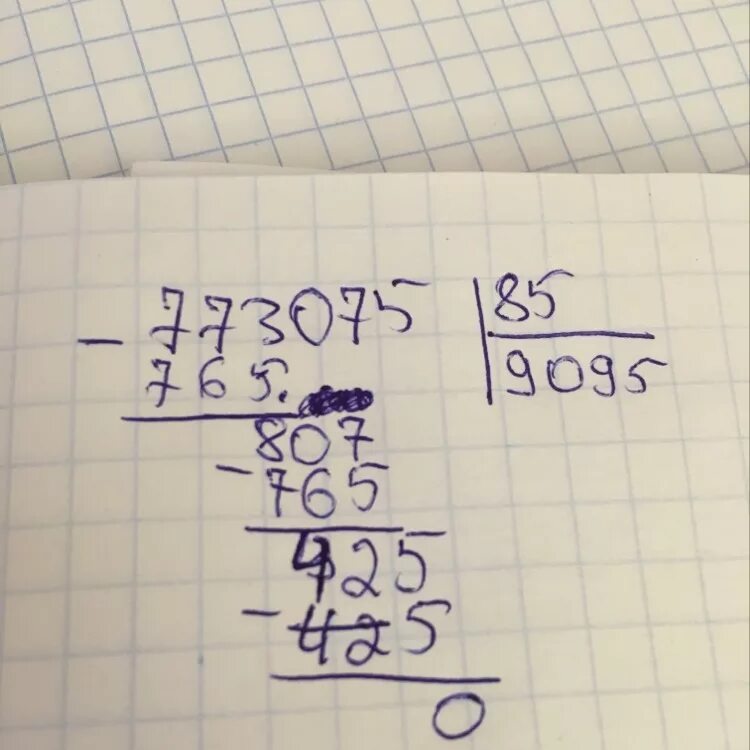 - 773075 | 85
765. 9095
807
- 765
425
- 425
0